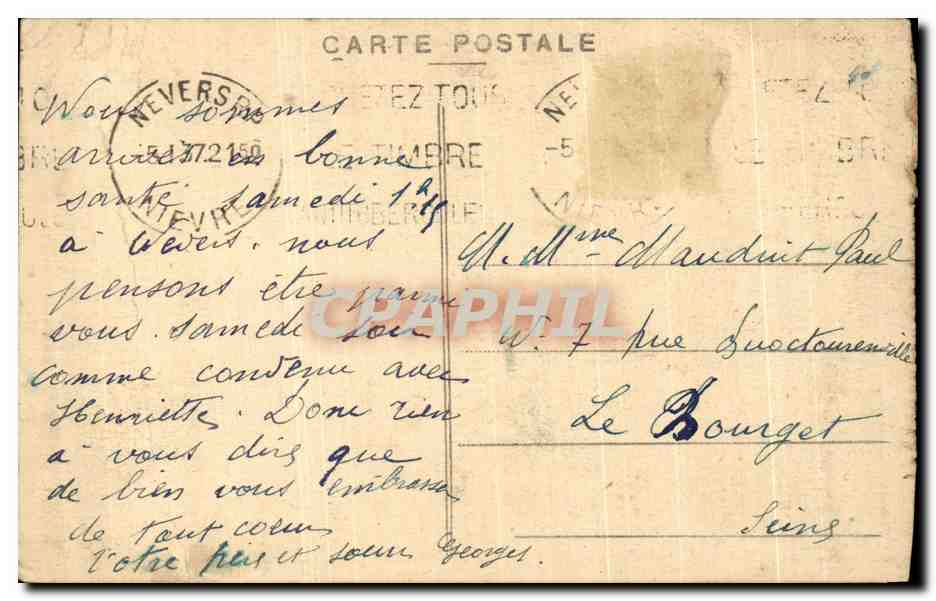 CARTE POSTALE
NEVERS
5-1 37.2150
NIEVRE
ACHETEZ TOUS
LE TIMBRE
ANTITUBERCULEUX
Nous sommes
arrivés en bonne
santé samedi 1h 15
à Nevers. nous
pensons être parmi
vous samedi soir
comme convenu avec
Henriette. Donc rien
à vous dire que
de bien vous embrasser
de tout coeur
Votre frere et soeur Georges.
M. Mme Mauduit Paul
N° 7 rue
Le Bourget
Seine
CPAPHIL